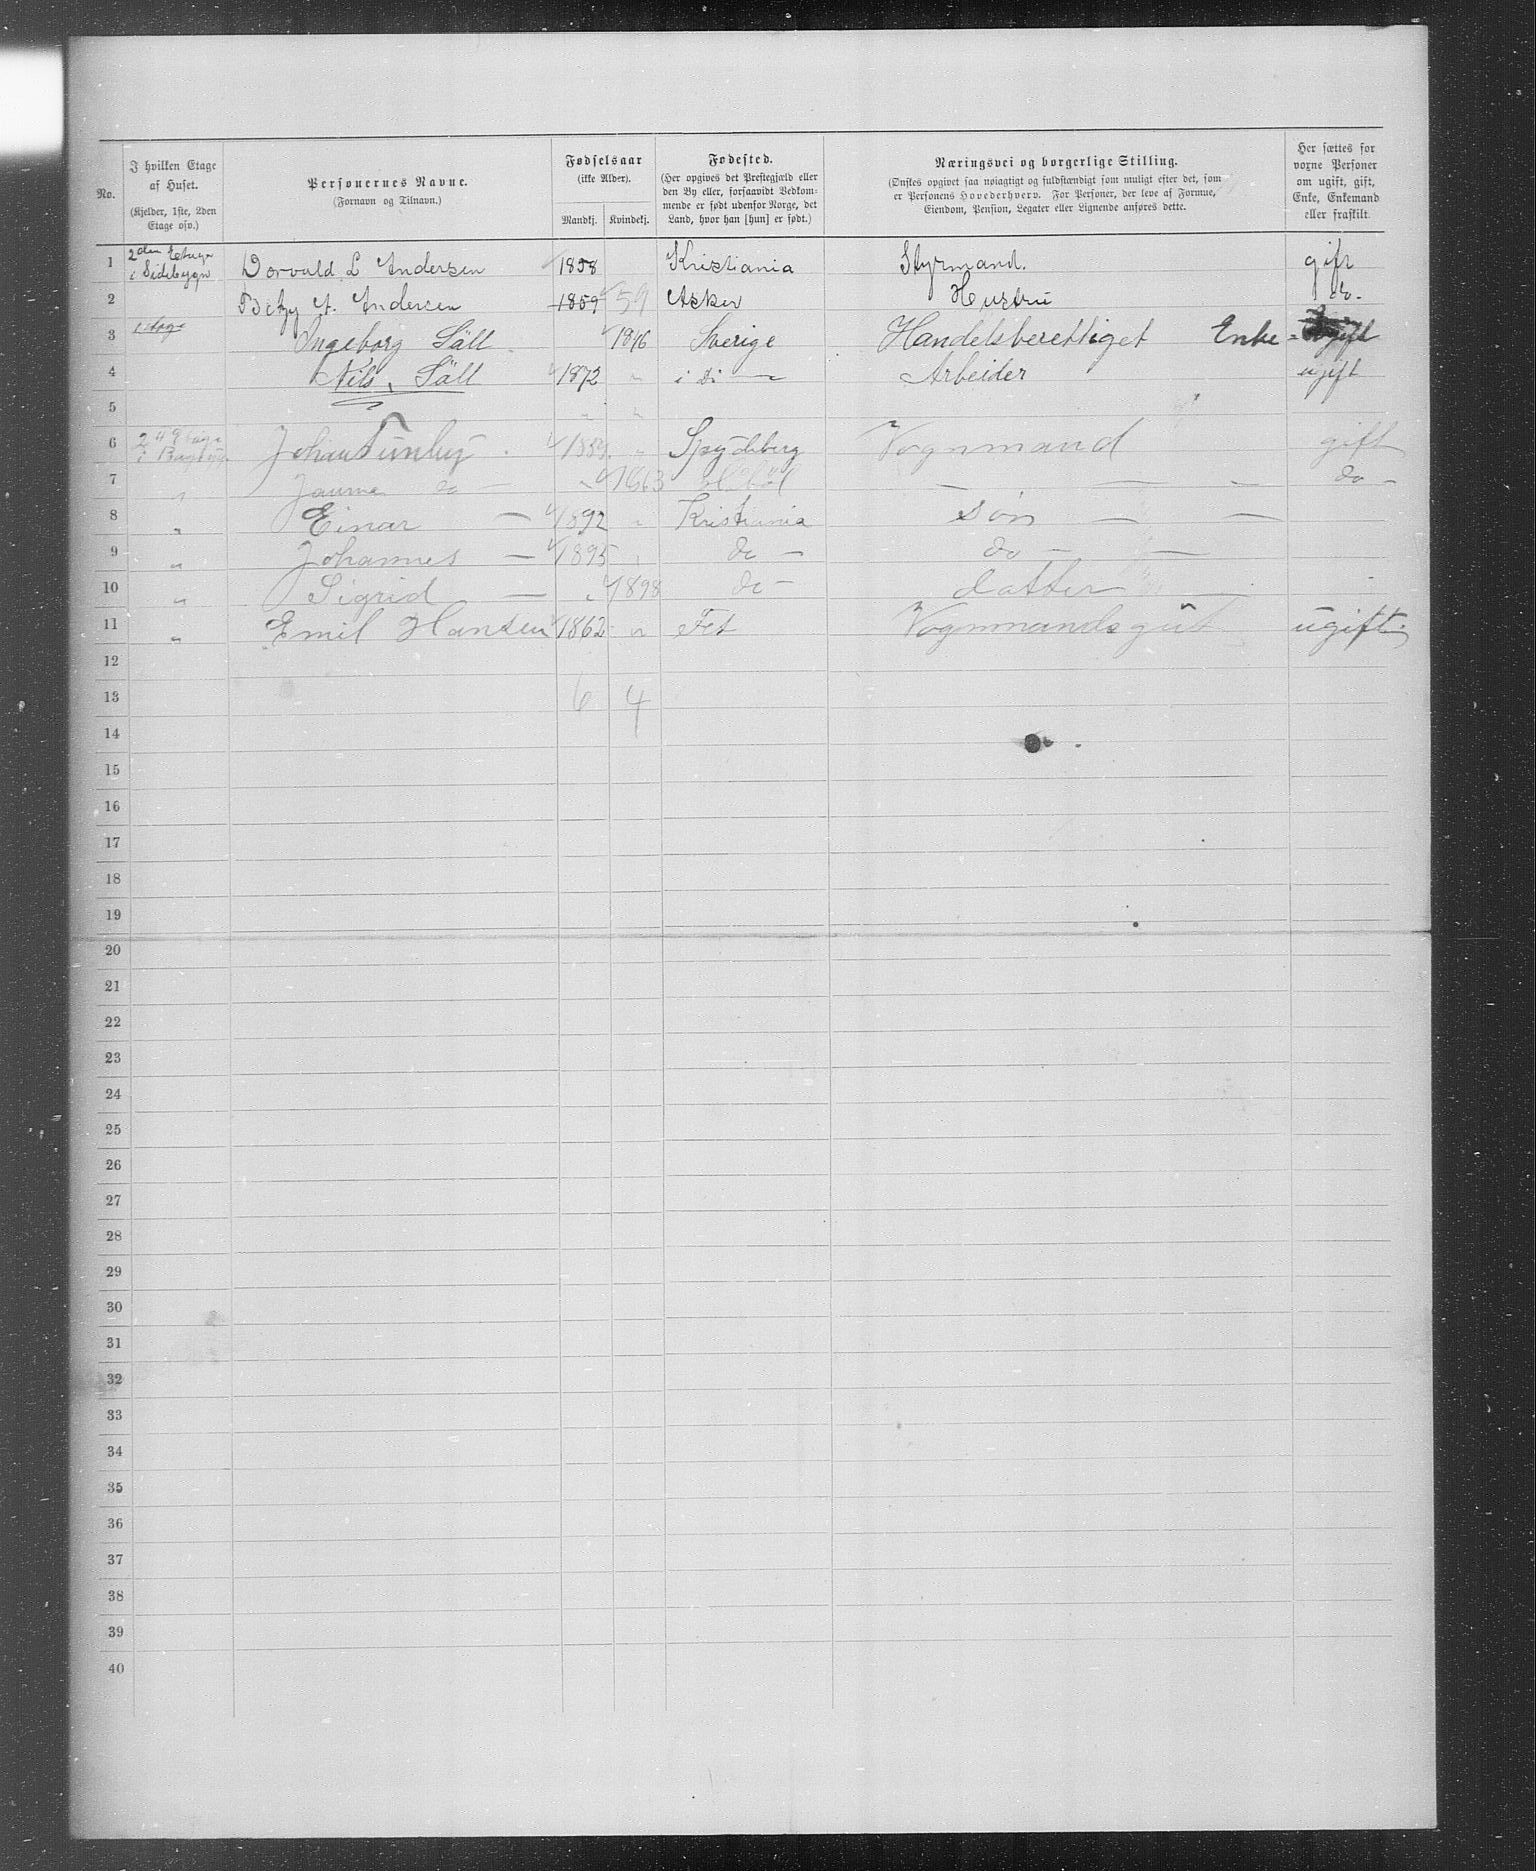 No.
I hvilken Etage af Huset. (Kjelder, 1ste, 2den Etage osv.)
Personernes Navne. (Fornavn og Tilnavn.)
Fødselsaar (ikke Alder). Mandkj. Kvindekj.
Fødested. (Her opgives det Prestegjæld eller den By eller, forsaavidt Vedkommende er født udenfor Norge, det Land, hvor han [hun] er født.)
Næringsvei og borgerlige Stilling. (Ønskes opgivet saa nøiagtigt og fuldstændigt som muligt efter det, som er Personens Hovederhverv. For Personer, der leve af Formue, Eiendom, Pension, Legater eller Lignende anføres dette.
Her sættes for voxne Personer om ugift, gift, Enke, Enkemand eller fraskilt.
1 2den Etage i Sidebygn Dorvald L Andersen 1858 Kristiania Styrmand. gift
2 Betzy A. Andersen 1859 59 Asker Hustru do.
3 1 Etage Ingeborg Säll 1846 Sverige Handelsberettiget Enke
4 Nils. Säll 1872 " i Di — Arbeider ugift
5 " "
6 2 Etage i Bagbyg. Johan Tunby 1859 " Spydeberg Vognmand gift
7 " do — " 1863 — — — do —
8 " Einar — 1892 " Kristiania søn — —
9 " Johannes — 1895 " do — do — —
10 " Sigrid — " 1898 do — datter —
11 " Emil Hansen 1862 " Fet Vognmandsgut ugift.
12
13 6 4
14
15
16
17
18
19
20
21
22
23
24
25
26
27
28
29
30
31
32
33
34
35
36
37
38
39
40